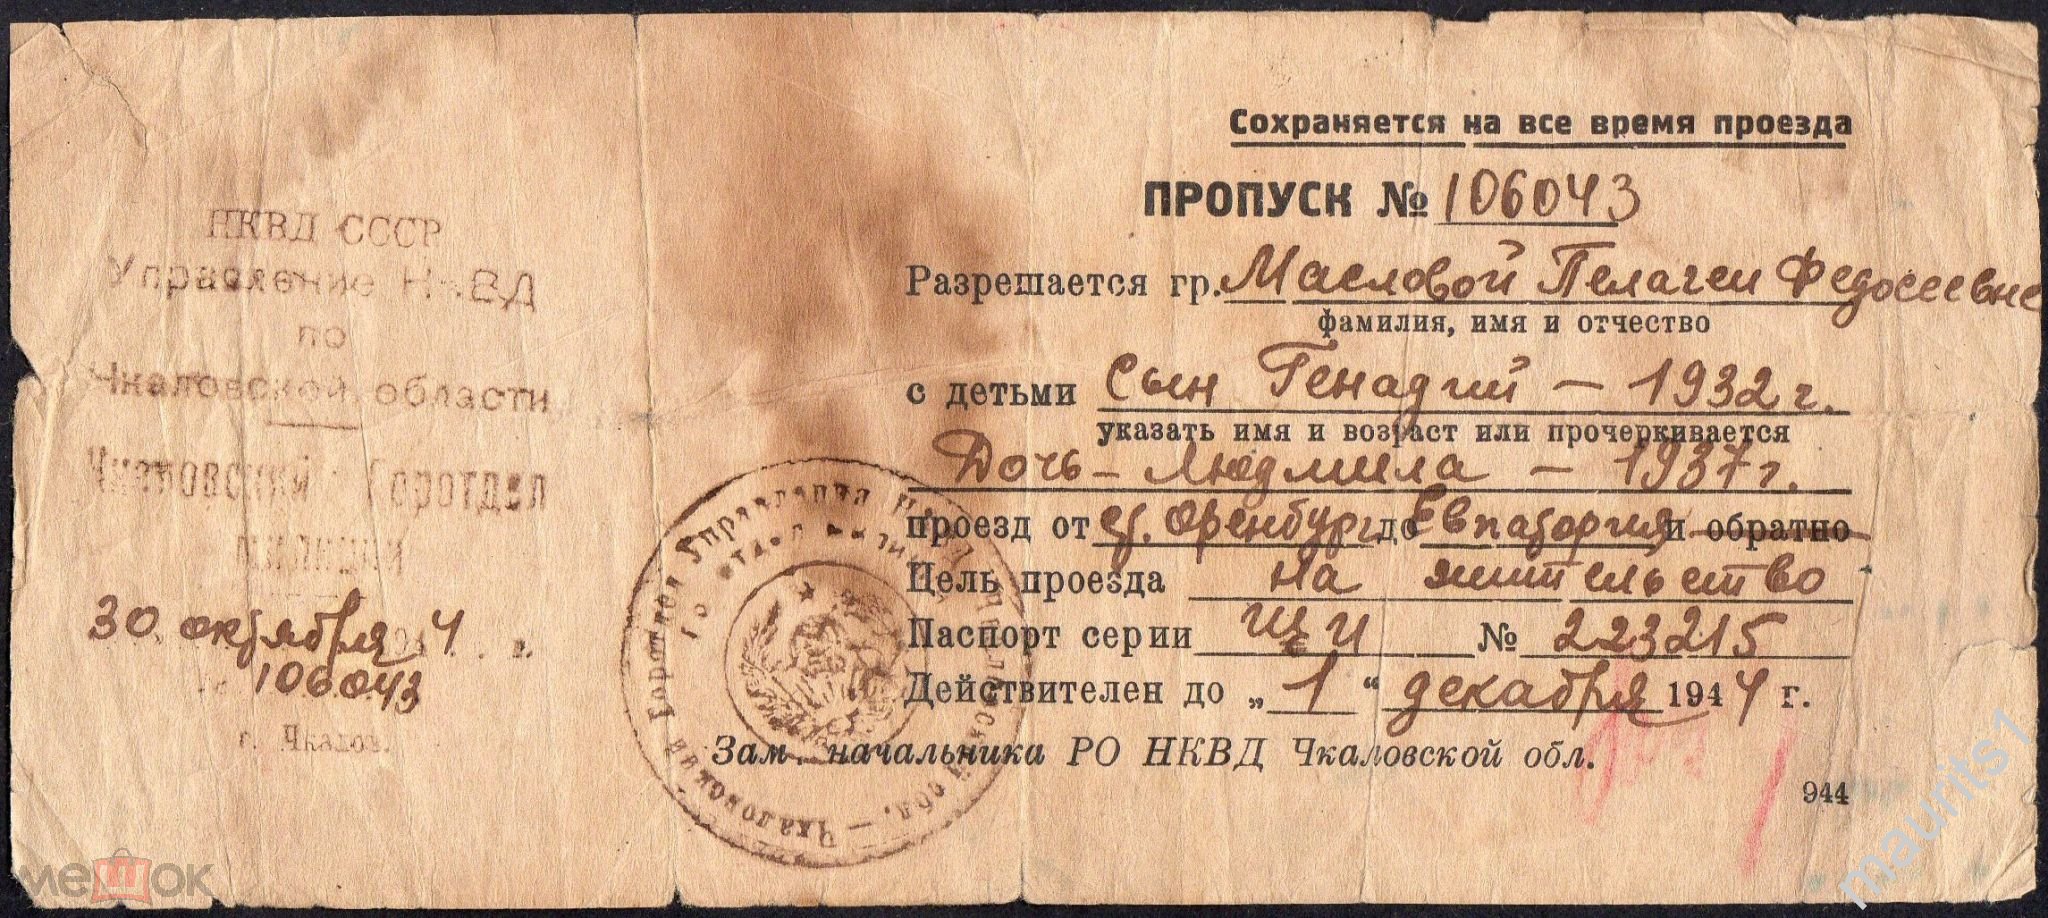 НКВД СССР
Управление НКВД
по
Чкаловской области
Чкаловский Горотдел
милиции
30 октября 1944
106043
г. Чкалов.
Сохраняется на все время проезда
ПРОПУСК № 106043
Разрешается гр. Масловой Пелагеи Федосеевне
фамилия, имя и отчество
с детьми Сын Генадгий – 1932 г.
указать имя и возраст или прочеркивается
Дочь – Людмила – 1937 г.
проезд от Оренбург до Евпатория и обратно
Цель проезда на жительство
Паспорт серии № 223215
Действителен до „1“ декабря 1944 г.
Зам. начальника РО НКВД Чкаловской обл.
944
Управления обл. – Чкаловский Горотдел
мешок
maurits1